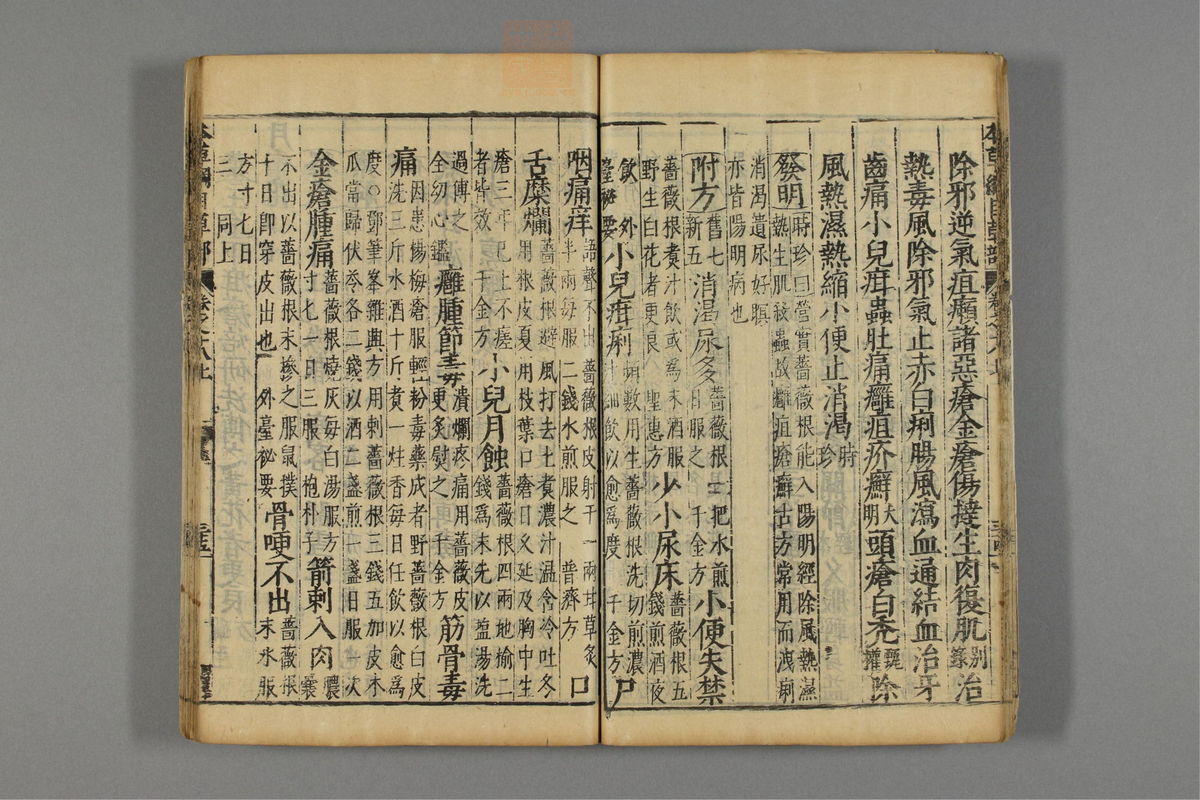 除邪逆氣疽癩諸惡瘡金瘡傷撻生肉復肌别録治
熱毒風除邪氣止赤白痢腸風瀉血通結血治牙
齒痛小兒疳蟲肚痛癰疽疥癬大明頭瘡白禿甄權除
風熱濕熱縮小便止消渴時珍
發明時珍曰營實薔薇根能入陽明經除風熱濕
熱生肌殺蟲故癰疽瘡癬古方常用而洩痢
消渴遺尿好瞑
亦皆陽明病也
附方舊七新五消渴尿多薔薇根一把水煎日服之千金方小便失禁
薔薇根煑汁飲或為末酒服
野生白花者更良聖惠方少小尿床薔薇根五錢煎酒夜
飲外臺秘要小兒疳痢頻數用生薔薇根洗切煎濃汁細飲以愈爲度千金方尸
咽痛痒語聲不出薔薇根皮射干一兩甘草炙
半兩每服二錢水煎服之普濟方口
舌糜爛薔薇根避風打去土煑濃汁溫含冷吐冬用根皮夏用枝葉口瘡日久延及胸中生
瘡三年已上不瘥者皆效千金方小兒月蝕薔薇根四兩地榆二錢爲末先以盐湯洗
過傅之全幼心鑑癰腫節毒潰爛疼痛用薔薇皮更炙熨之千金方筋骨毒
痛因患楊梅瘡服輕粉毒藥成者野薔薇根白皮
洗三斤水酒十斤煑一炷香每日任飲以愈爲
度○鄧筆峯雜興方用刺薔薇根三錢五加皮木
瓜當歸伏苓各二錢以酒二盞煎一盞日服一次
金瘡腫痛薔薇根燒灰每白湯服方寸匕一日三服抱朴子箭刺入肉膿囊
不出以薔薇根末摻之服鼠撲
十日卽穿皮出也外臺秘要骨哽不出薔薇根末水服
方寸匕日
三同上